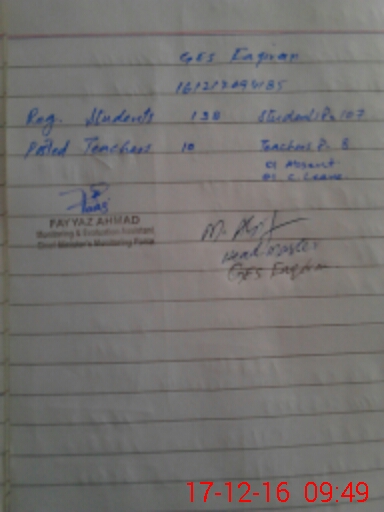 GES Enginan
Reg. Students 130 Students P. 107
Posted Teachers 10 Teachers P. 8
01 Absent
01 C. Leave
FAYYAZ AHMAD
Monitoring & Evaluation Assistant
Chief Minister's Monitoring Force
Head Master
GES
17-12-16 09:49